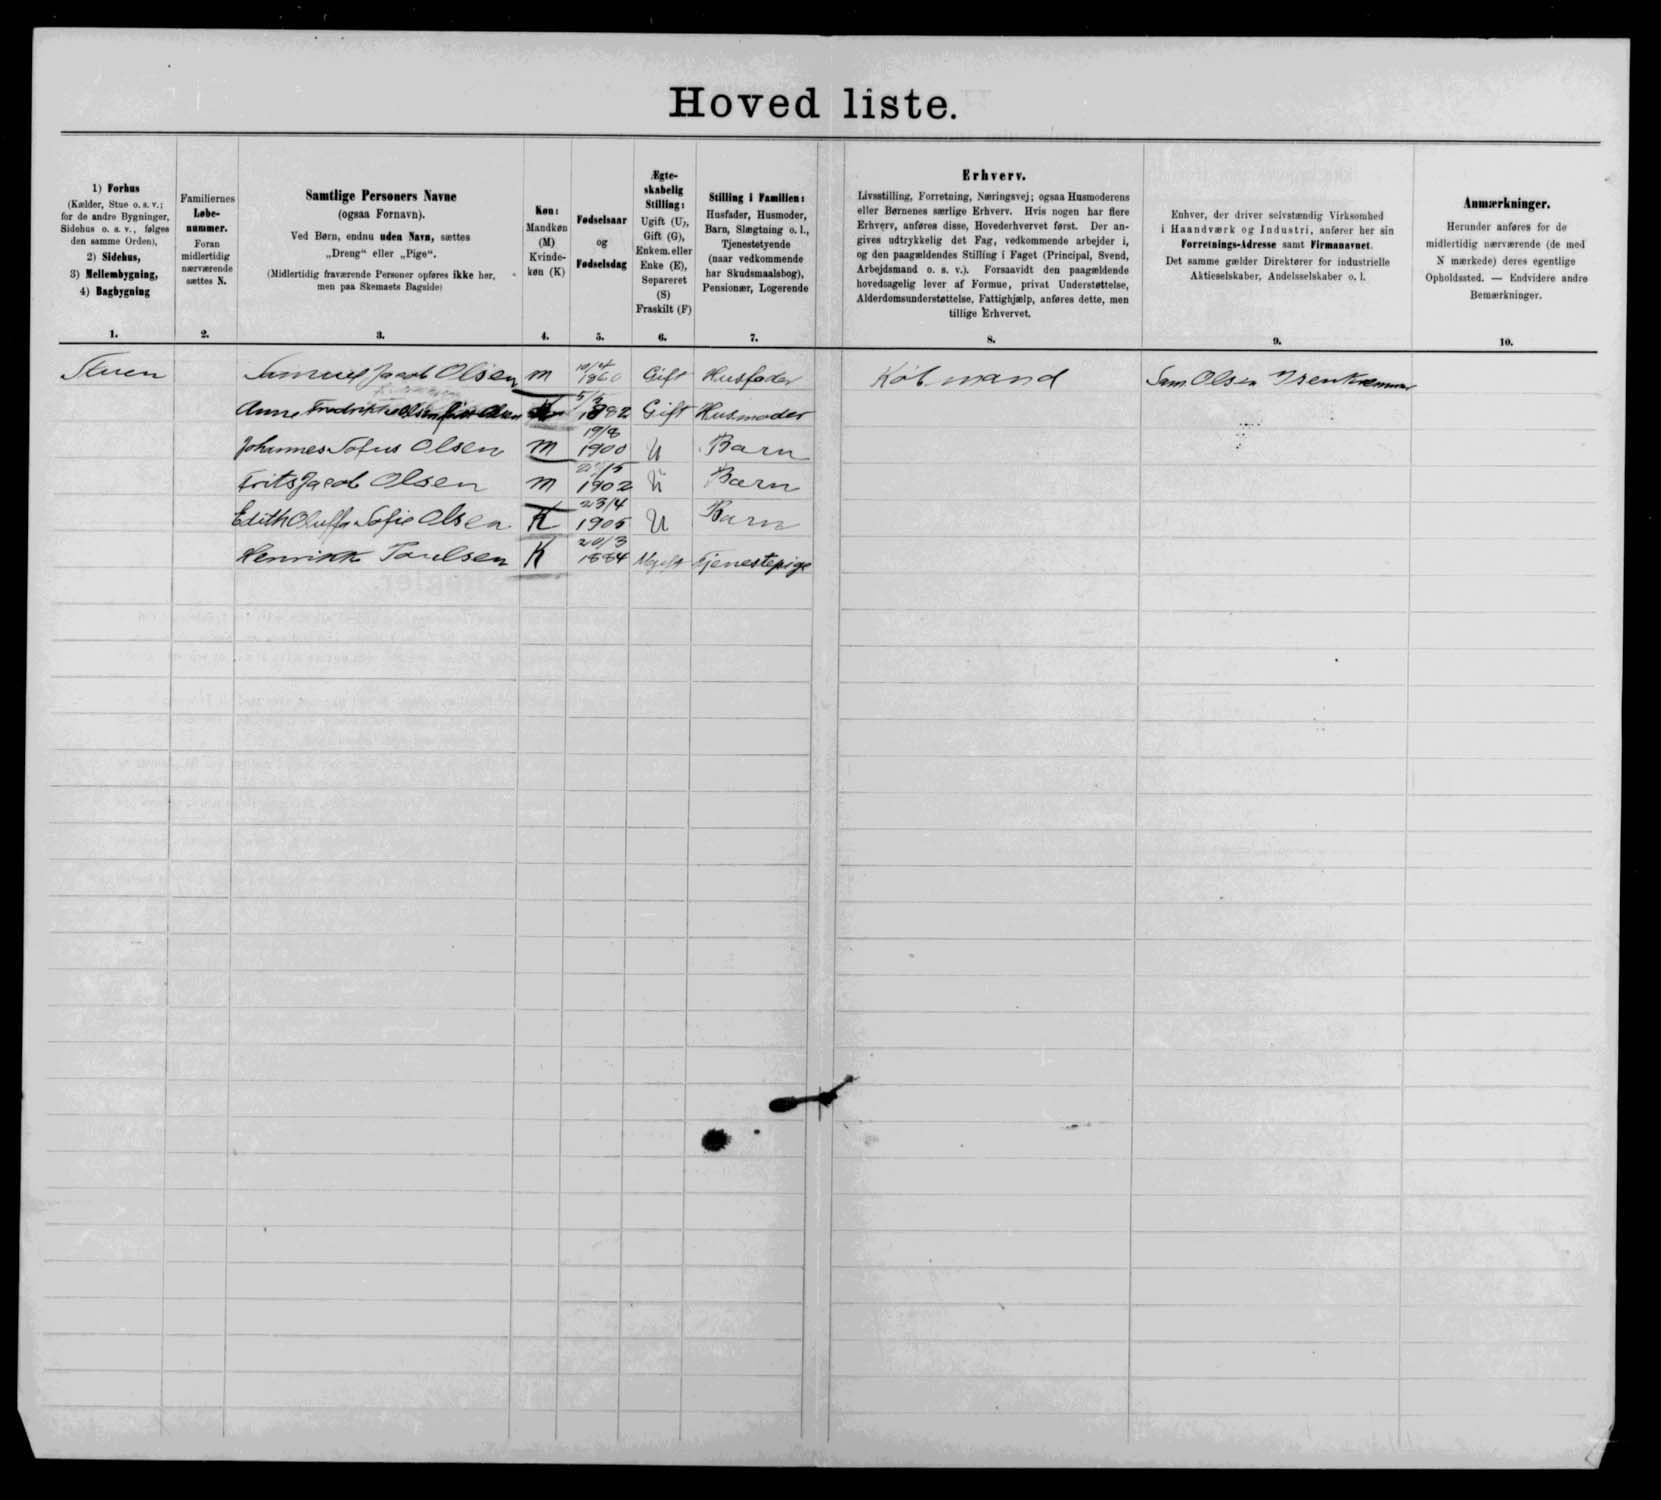 Hoved liste.
1) Forhus
(Kælder, Stue o. s. v.;
for de andre Bygninger,
Sidehus o. s. v., følges
den samme Orden),
2) Sidehus,
3) Mellembygning,
4) Bagbygning
1.
Familiernes
Løbe-
nummer.
Foran
midlertidig
nærværende
sættes N.
2.
Samtlige Personers Navne
(ogsaa Fornavn).
Ved Børn, endnu uden Navn, sættes
„Dreng“ eller „Pige“.
(Midlertidig fraværende Personer opføres ikke her,
men paa Skemaets Bagside)
3.
Køn:
Mandkøn
(M)
Kvinde-
køn (K)
4.
Fødselsaar
og
Fødselsdag
5.
Ægte-
skabelig
Stilling:
Ugift (U),
Gift (G),
Enkem. eller
Enke (E),
Separeret
(S)
Fraskilt (F)
6.
Stilling i Familien:
Husfader, Husmoder,
Barn, Slægtning o. l.,
Tjenestetyende
(naar vedkommende
har Skudsmaalsbog),
Pensionær, Logerende
7.
Erhverv.
Livsstilling, Forretning, Næringsvej; ogsaa Husmoderens
eller Børnenes særlige Erhverv. Hvis nogen har flere
Erhverv, anføres disse, Hovederhvervet først. Der an-
gives udtrykkelig det Fag, vedkommende arbejder i,
og den paagældendes Stilling i Faget (Principal, Svend,
Arbejdsmand o. s. v.). Forsaavidt den paagældende
hovedsagelig lever af Formue, privat Understøttelse,
Alderdomsunderstøttelse, Fattighjælp, anføres dette, men
tillige Erhvervet.
8.
Enhver, der driver selvstændig Virksomhed
i Haandværk og Industri, anfører her sin
Forretnings-Adresse samt Firmanavnet.
Det samme gælder Direktører for industrielle
Aktieselskaber, Andelsselskaber o. l.
9.
Anmærkninger.
Herunder anføres for de
midlertidig nærværende (de med
N mærkede) deres egentlige
Opholdssted. — Endvidere andre
Bemærkninger.
10.
Stuen Samuel Jacob Olsen M 10/4 1860 Gift Husfader Købmand Sam Olsen Isenkræmmer
Anne Fredrikke Olsen K 5/3 1882 Gift Husmoder
Johannes Sofus Olsen M 19/8 1900 U Barn
Frits Jacob Olsen M 1902 U Barn
Edith Oluffa Sofie Olsen K 23/4 1905 U Barn
Henrikke Poulsen K 20/3 1884 Ugift Tjenestepige